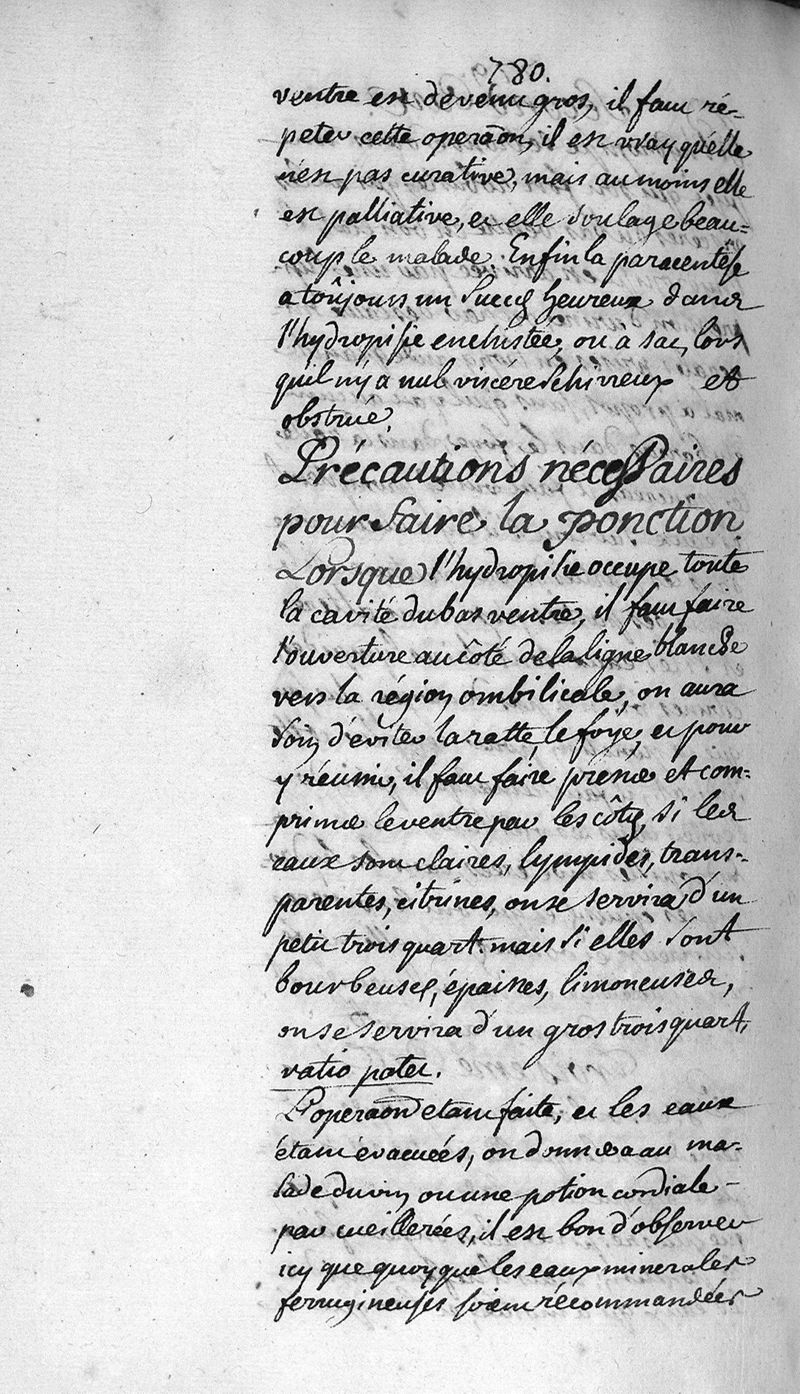 780.
ventre est devenu gros, il faut ré-
peter cette operaõn, il est vray quélle
n'est pas curative, mais au moins elle
est palliative, et elle soulage beau=
coup le malade. Enfin la paracentése
a toûjours un succès heureux dans
l'hydropisie enchistée, ou a sac, lors
quil ny a nul viscére schirreux et
obstrué.
Précautions nécessaires
pour faire la ponction
Lorsque l'hydropisie occupe toute
la cavité du bas ventre, il faut faire
l'ouverture au côté de la ligne blanche
vers la région ombilicale, on aura
soin d'éviter la ratte, le foÿe, et pour
y réussir, il faut faire presser et com=
primer le ventre par les côtés, si les
eaux sont claires, lympides, trans=
parentes, citrines, on se servira d'un
petit trois quart. mais si elles sont
bourbeuses, épaisses, limoneuses,
on se servira d'un gros trois quart,
ratio patet.
L'operaõn etant faite, et les eaux
étant évacuées, on donnera au ma=
lade du vin, ou une potion cordiale
par cueillerées, il est bon d'observer
icy que quoyque les eaux minerales
ferrugineuses soient récommandées